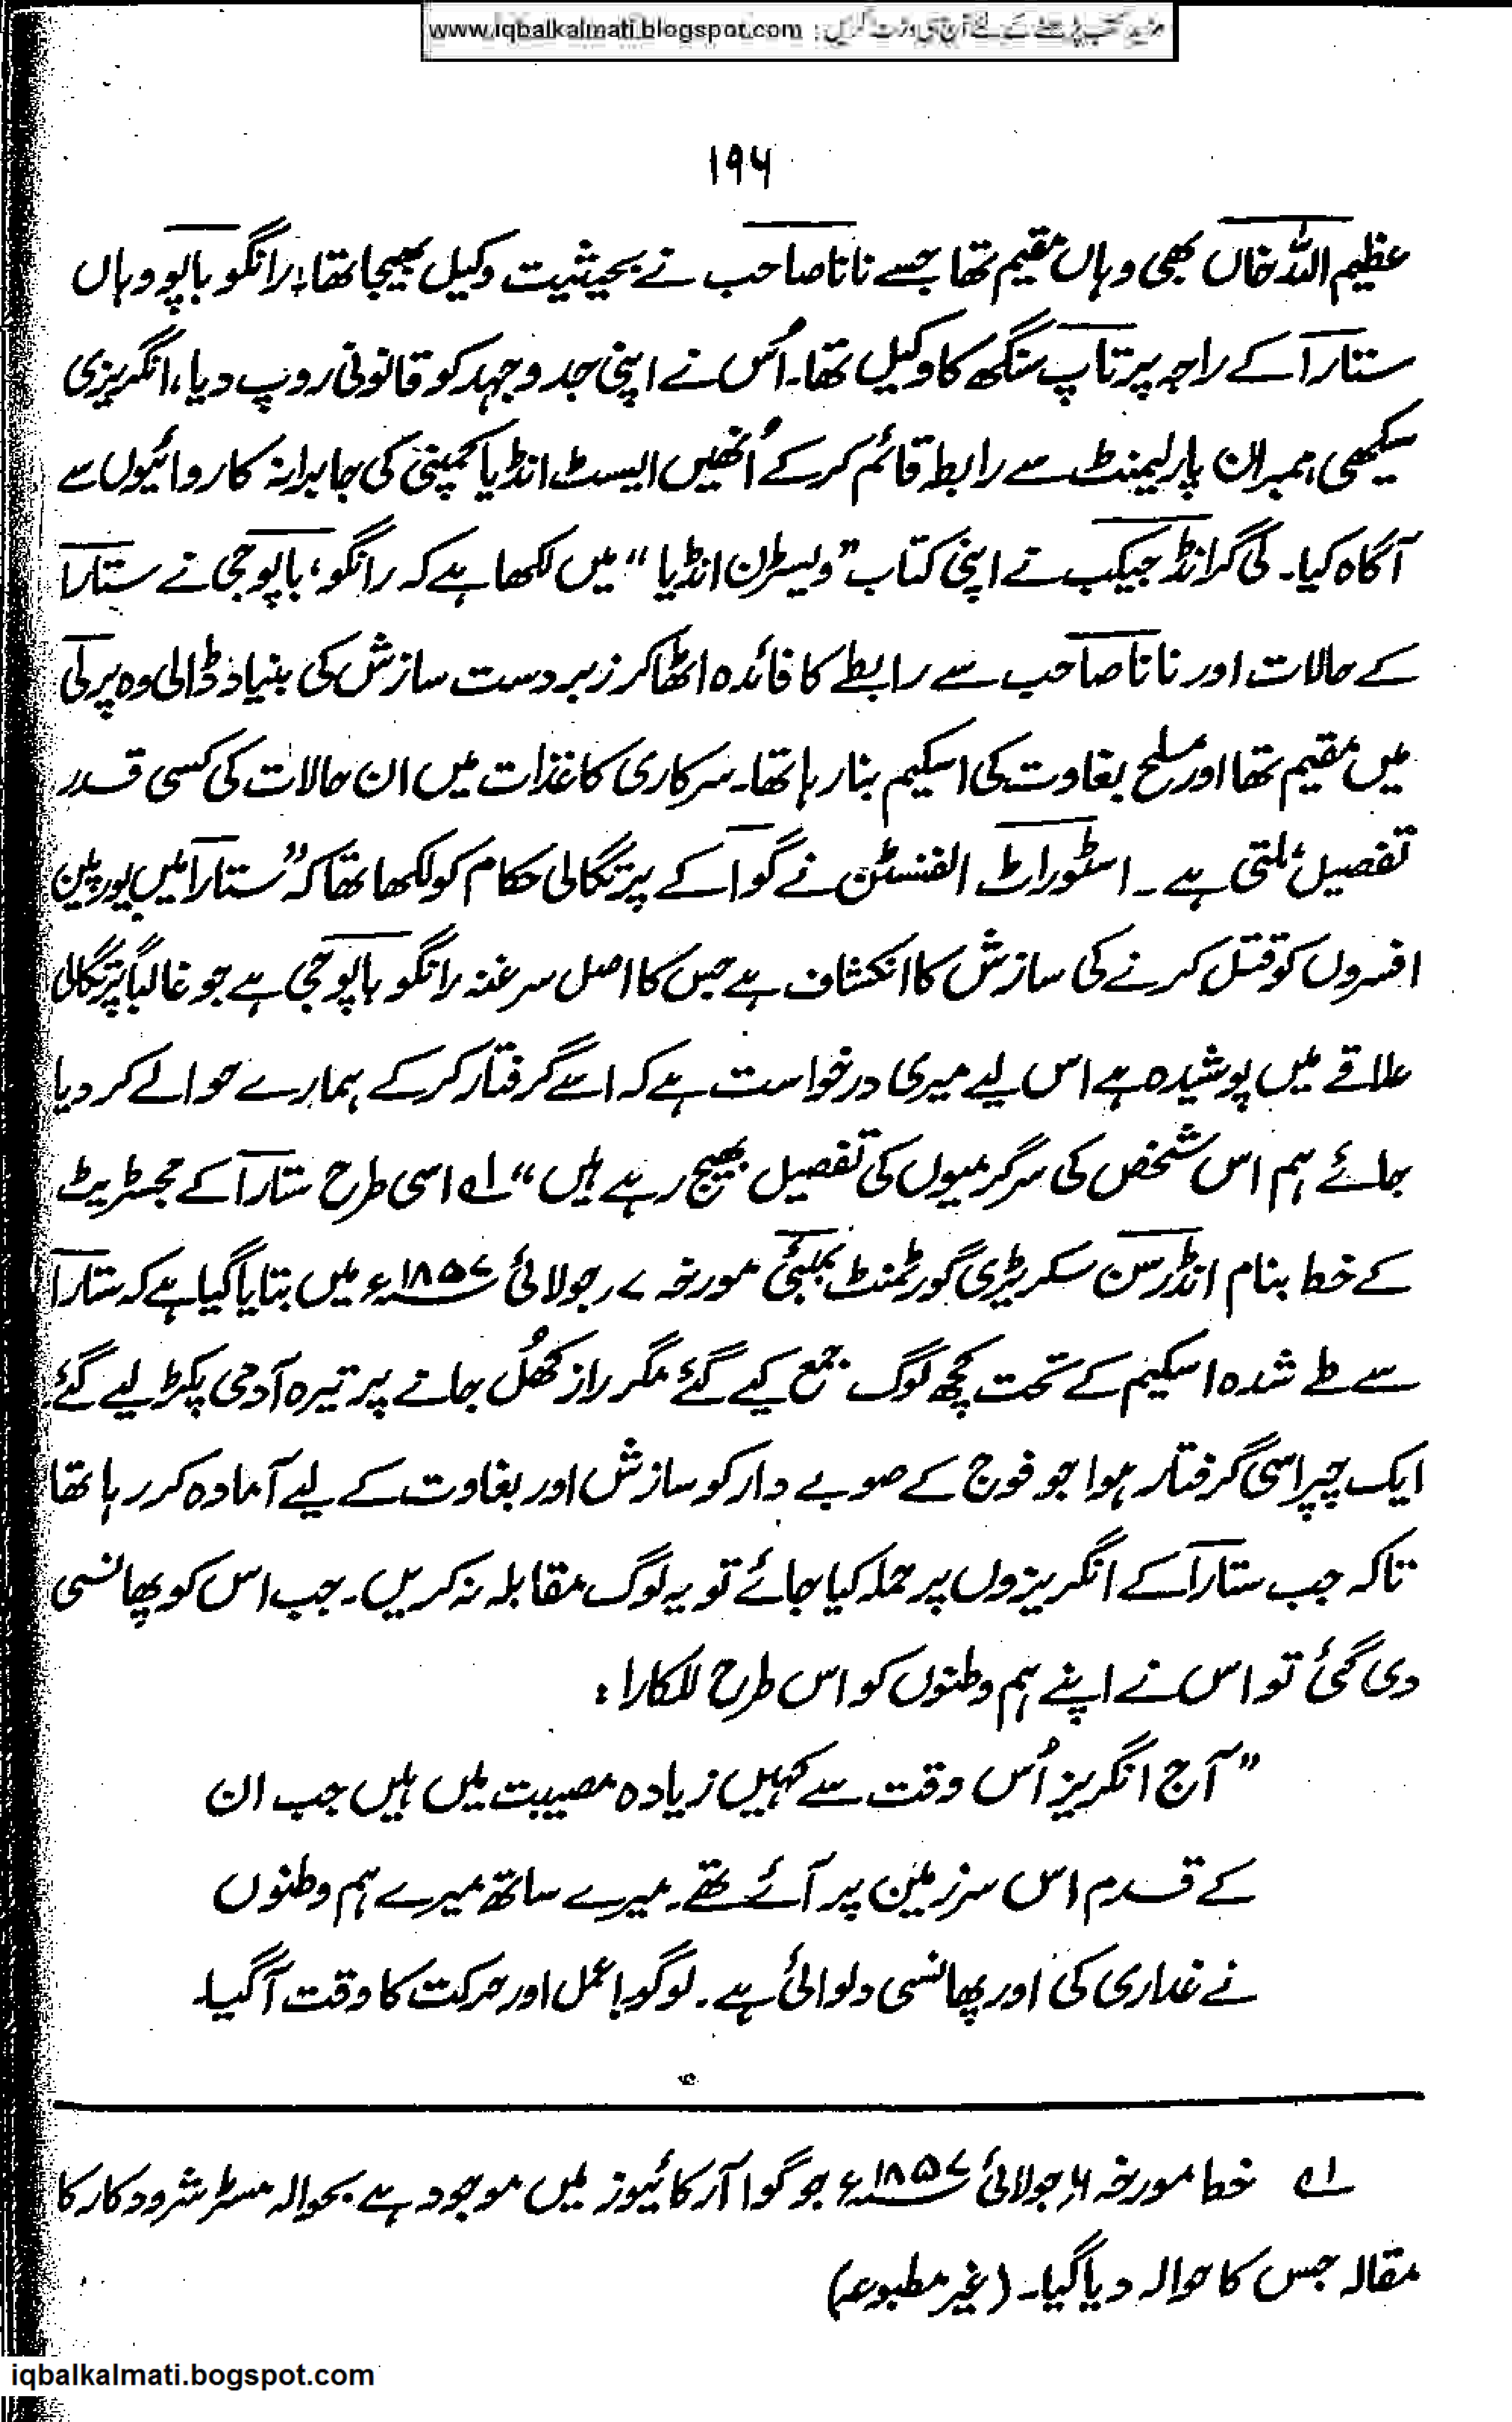 www.iqbalkalmati.blogspot.com : مزید کتب پڑھنے کے لئے آج ہی وزٹ کریں
۱۹۶
عظیم اللہ خاں بھی وہاں مقیم تھا جسے نانا صاحب نے بحیثیت وکیل بھیجا تھا۔ رانگو باپو وہاں
ستارا کے راجہ پرتاپ سنگھ کا وکیل تھا۔ اُس نے اپنی جدوجہد کو قانونی روپ دیا، انگریزی
سیکھی، ممبران پارلیمنٹ سے رابطہ قائم کرکے اُنھیں ایسٹ انڈیا کمپنی کی جابرانہ کاروائیوں سے
آگاہ کیا۔ لی گرانڈ جیکب نے اپنی کتاب ”ویسٹرن انڈیا“ میں لکھا ہے کہ رانگو، باپوجی نے ستارا
کے حالات اور نانا صاحب سے رابطے کا فائدہ اٹھا کر زبردست سازش کی بنیاد ڈالی وہ پرلی
میں مقیم تھا اور مسلح بغاوت کی اسکیم بنا رہا تھا۔ سرکاری کاغذات میں ان حالات کی کسی قدر
تفصیل ملتی ہے۔ اسٹوراٹ الفنسٹن نے گوا کے پرتگالی حکام کو لکھا تھا کہ ”ستارا میں یورپین
افسروں کو قتل کرنے کی سازش کا انکشاف ہے جس کا اصل سرغنہ رانگو باپوجی ہے جو غالباً پرتگالی
علاقے میں پوشیدہ ہے اس لیے میری درخواست ہے کہ اسے گرفتار کرکے ہمارے حوالے کر دیا
جائے ہم اس شخص کی سرگرمیوں کی تفصیل بھیج رہے ہیں“ ۱؎ اسی طرح ستارا کے مجسٹریٹ
کے خط بنام انڈرسن سکریٹری گورٹمنٹ بمبئی مورخہ ۷؍ جولائی ۱۸۵۷ء میں بتایا گیا ہے کہ ستارا
سے طے شدہ اسکیم کے تحت کچھ لوگ جمع کیے گئے مگر راز کھُل جانے پر تیرہ آدمی پکڑ لیے گئے
ایک چپراسی گرفتار ہوا جو فوج کے صوبے دار کو سازش اور بغاوت کے لیے آمادہ کر رہا تھا
تاکہ جب ستارا کے انگریزوں پر حملہ کیا جائے تو یہ لوگ مقابلہ نہ کریں۔ جب اس کو پھانسی
دی گئی تو اس نے اپنے ہم وطنوں کو اس طرح للکارا:
”آج انگریز اُس وقت سے کہیں زیادہ مصیبت میں ہیں جب ان
کے قدم اس سرزمین پر آئے تھے۔ میرے ساتھ میرے ہم وطنوں
نے غداری کی اور پھانسی دلوائی ہے۔ لوگو! عمل اور حرکت کا وقت آگیا۔
۱؎ خط مورخہ ۶؍ جولائی ۱۸۵۷ء جو گوا آرکائیوز میں موجود ہے بحوالہ مسٹر شرودکار کا
مقالہ جس کا حوالہ دیا گیا۔ (غیر مطبوعہ)
iqbalkalmati.bogspot.com